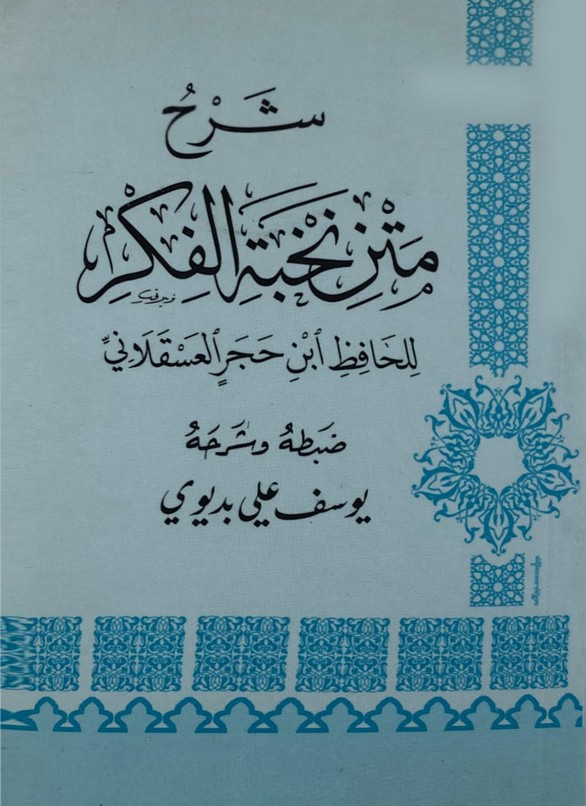 شَرْحُ
مَتْنِ نُخْبَةِ الفِكَرِ
لِلحَافِظِ ٱبْنِ حَجَرٍ ٱلعَسْقَلَانِيِّ
ضَبَطَهُ وَشَرَحَهُ
يوسف علي بديوي